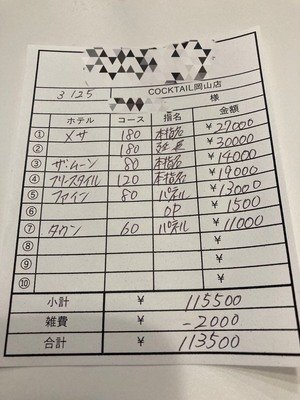 COCKTAIL岡山店
3 125 様
ホテル コース 指名 金額
① メサ 180 本指名 ¥27000
② 180 ¥30000
③ ザムーン 80 本指名 ¥14000
④ フリースタイル 120 本指名 ¥19000
⑤ ファイン 80 パネル ¥13000
⑥ OP ¥1500
⑦ タウン 60 パネル ¥11000
⑧
⑨
⑩
小計 ¥ 115500
雑費 ¥ -2000
合計 ¥ 113500